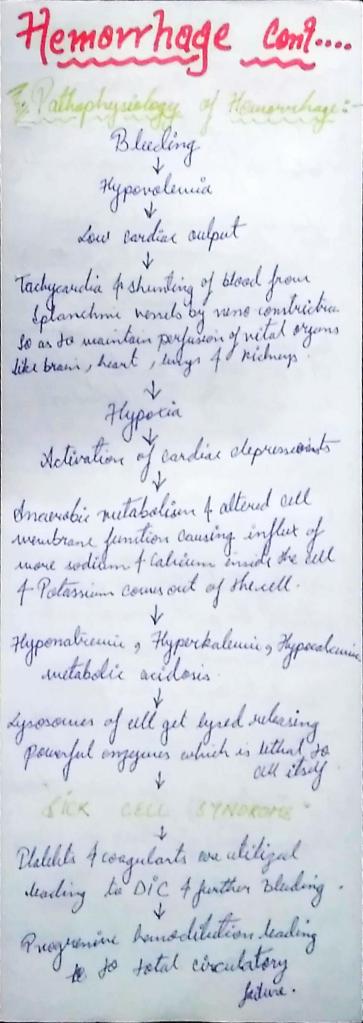 Hemorrhage Cont....
Pathophysiology of Hemorrhage:-
Bleeding
↓
Hypovolemia
↓
Low cardiac output
↓
Tachycardia & shunting of blood from
splanchnic vessels by veno constriction
so as to maintain perfusion of vital organs
like brain, heart, lungs & kidneys.
↓
Hypoxia
↓
Activation of cardiac depressants
↓
Anaerobic metabolism & altered cell
membrane function causing influx of
more sodium & Calcium inside the cell
& Potassium comes out of the cell.
↓
Hyponatremia, Hyperkalemia, Hypocalcemia
metabolic acidosis.
↓
Lysosomes of cell get lysed releasing
powerful enzymes which is lethal to
cell itself
↓
"SICK CELL SYNDROME"
↓
Platelets & coagulants are utilized
leading to DIC & further Bleeding.
↓
Progressive hemodilution leading
to total circulatory
failure.